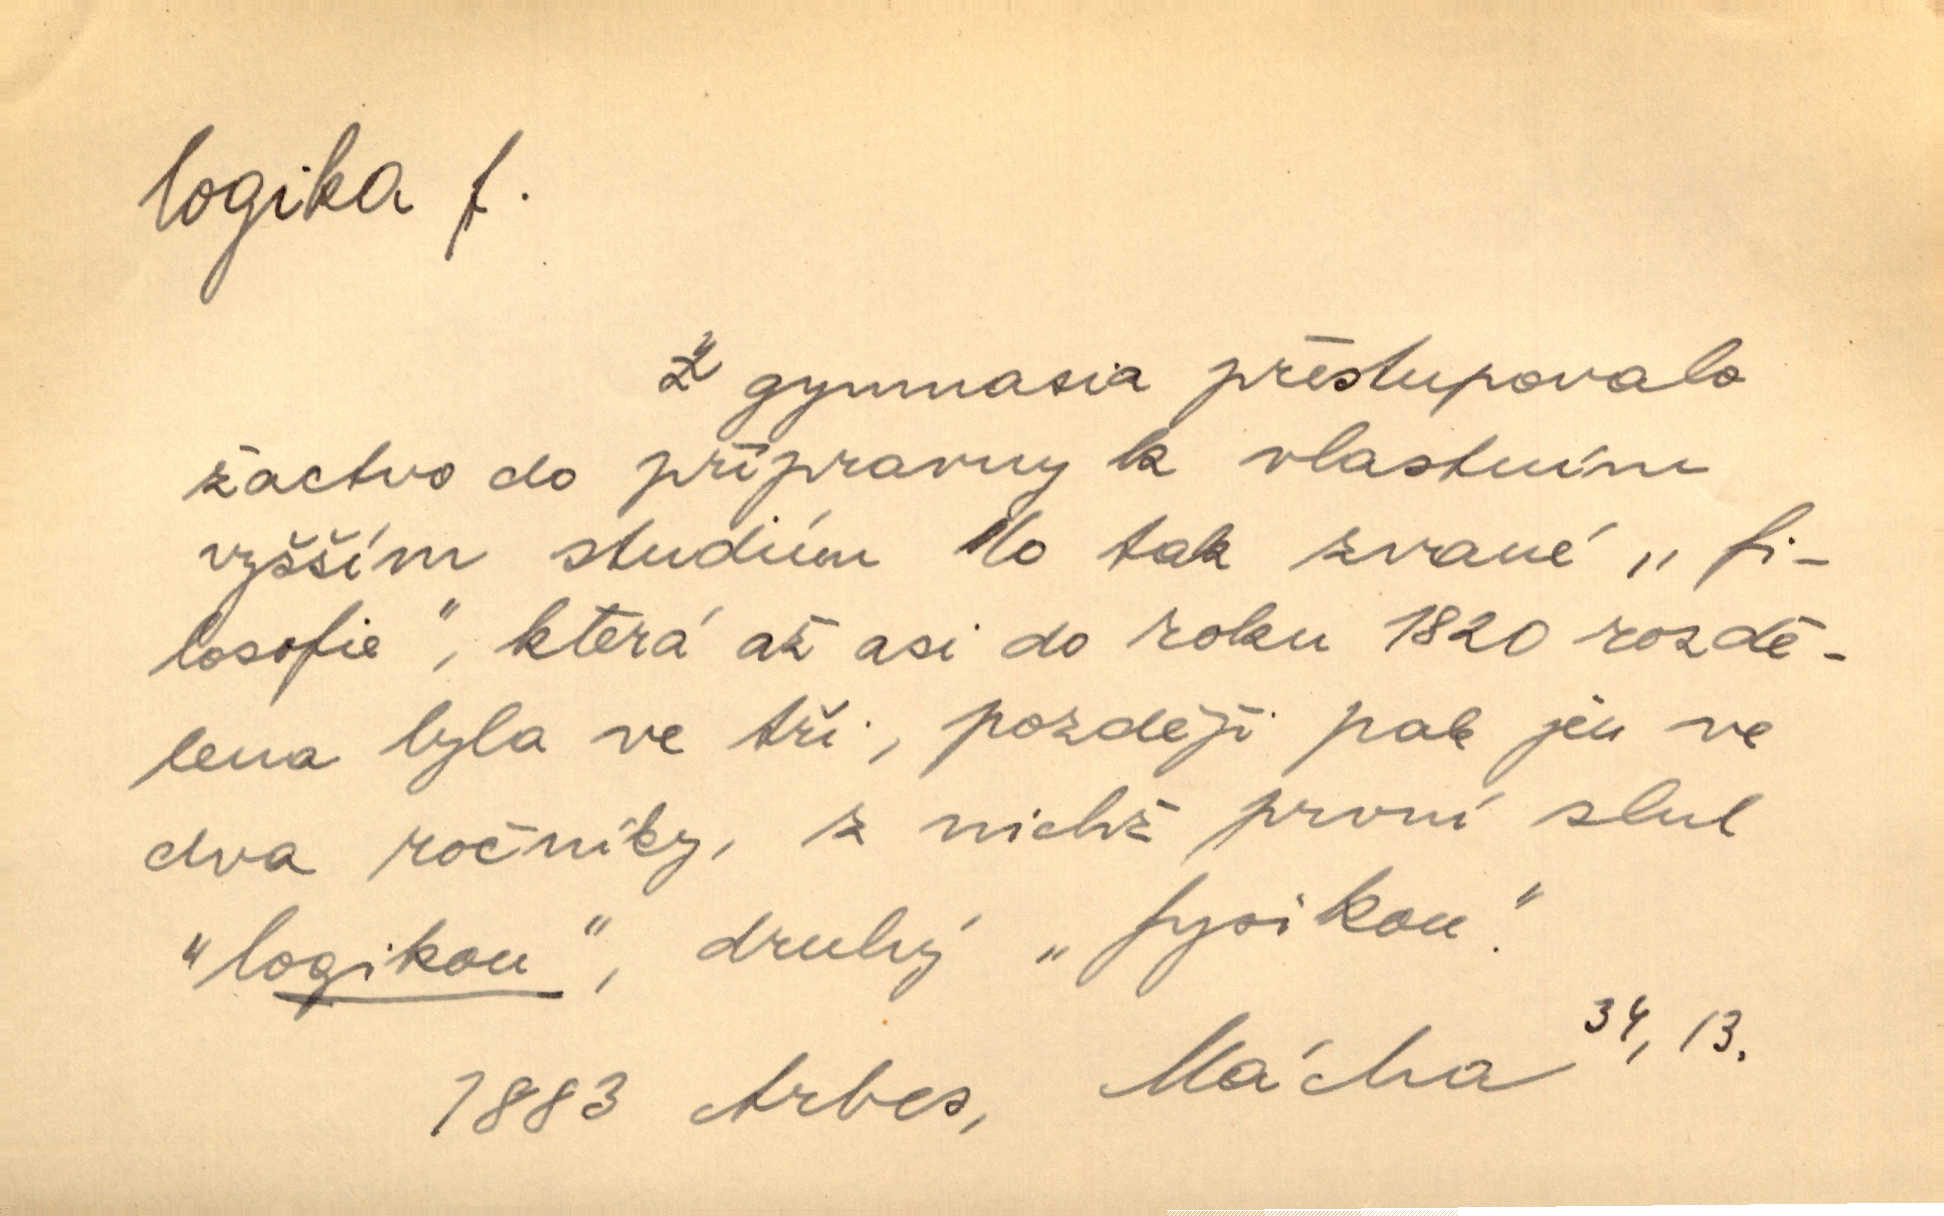 logika f.
Z gymnasia přestupovalo
žactvo do přípravny k vlastním
vyšším studiím do tak zvané „fi-
losofie", která až asi do roku 1820 rozdě-
lena byla ve tři, později pak jen ve
dva ročníky, z nichž první slul
"logikou", druhý „fysikou."
1883 Arbes, Mácha 34, 13.